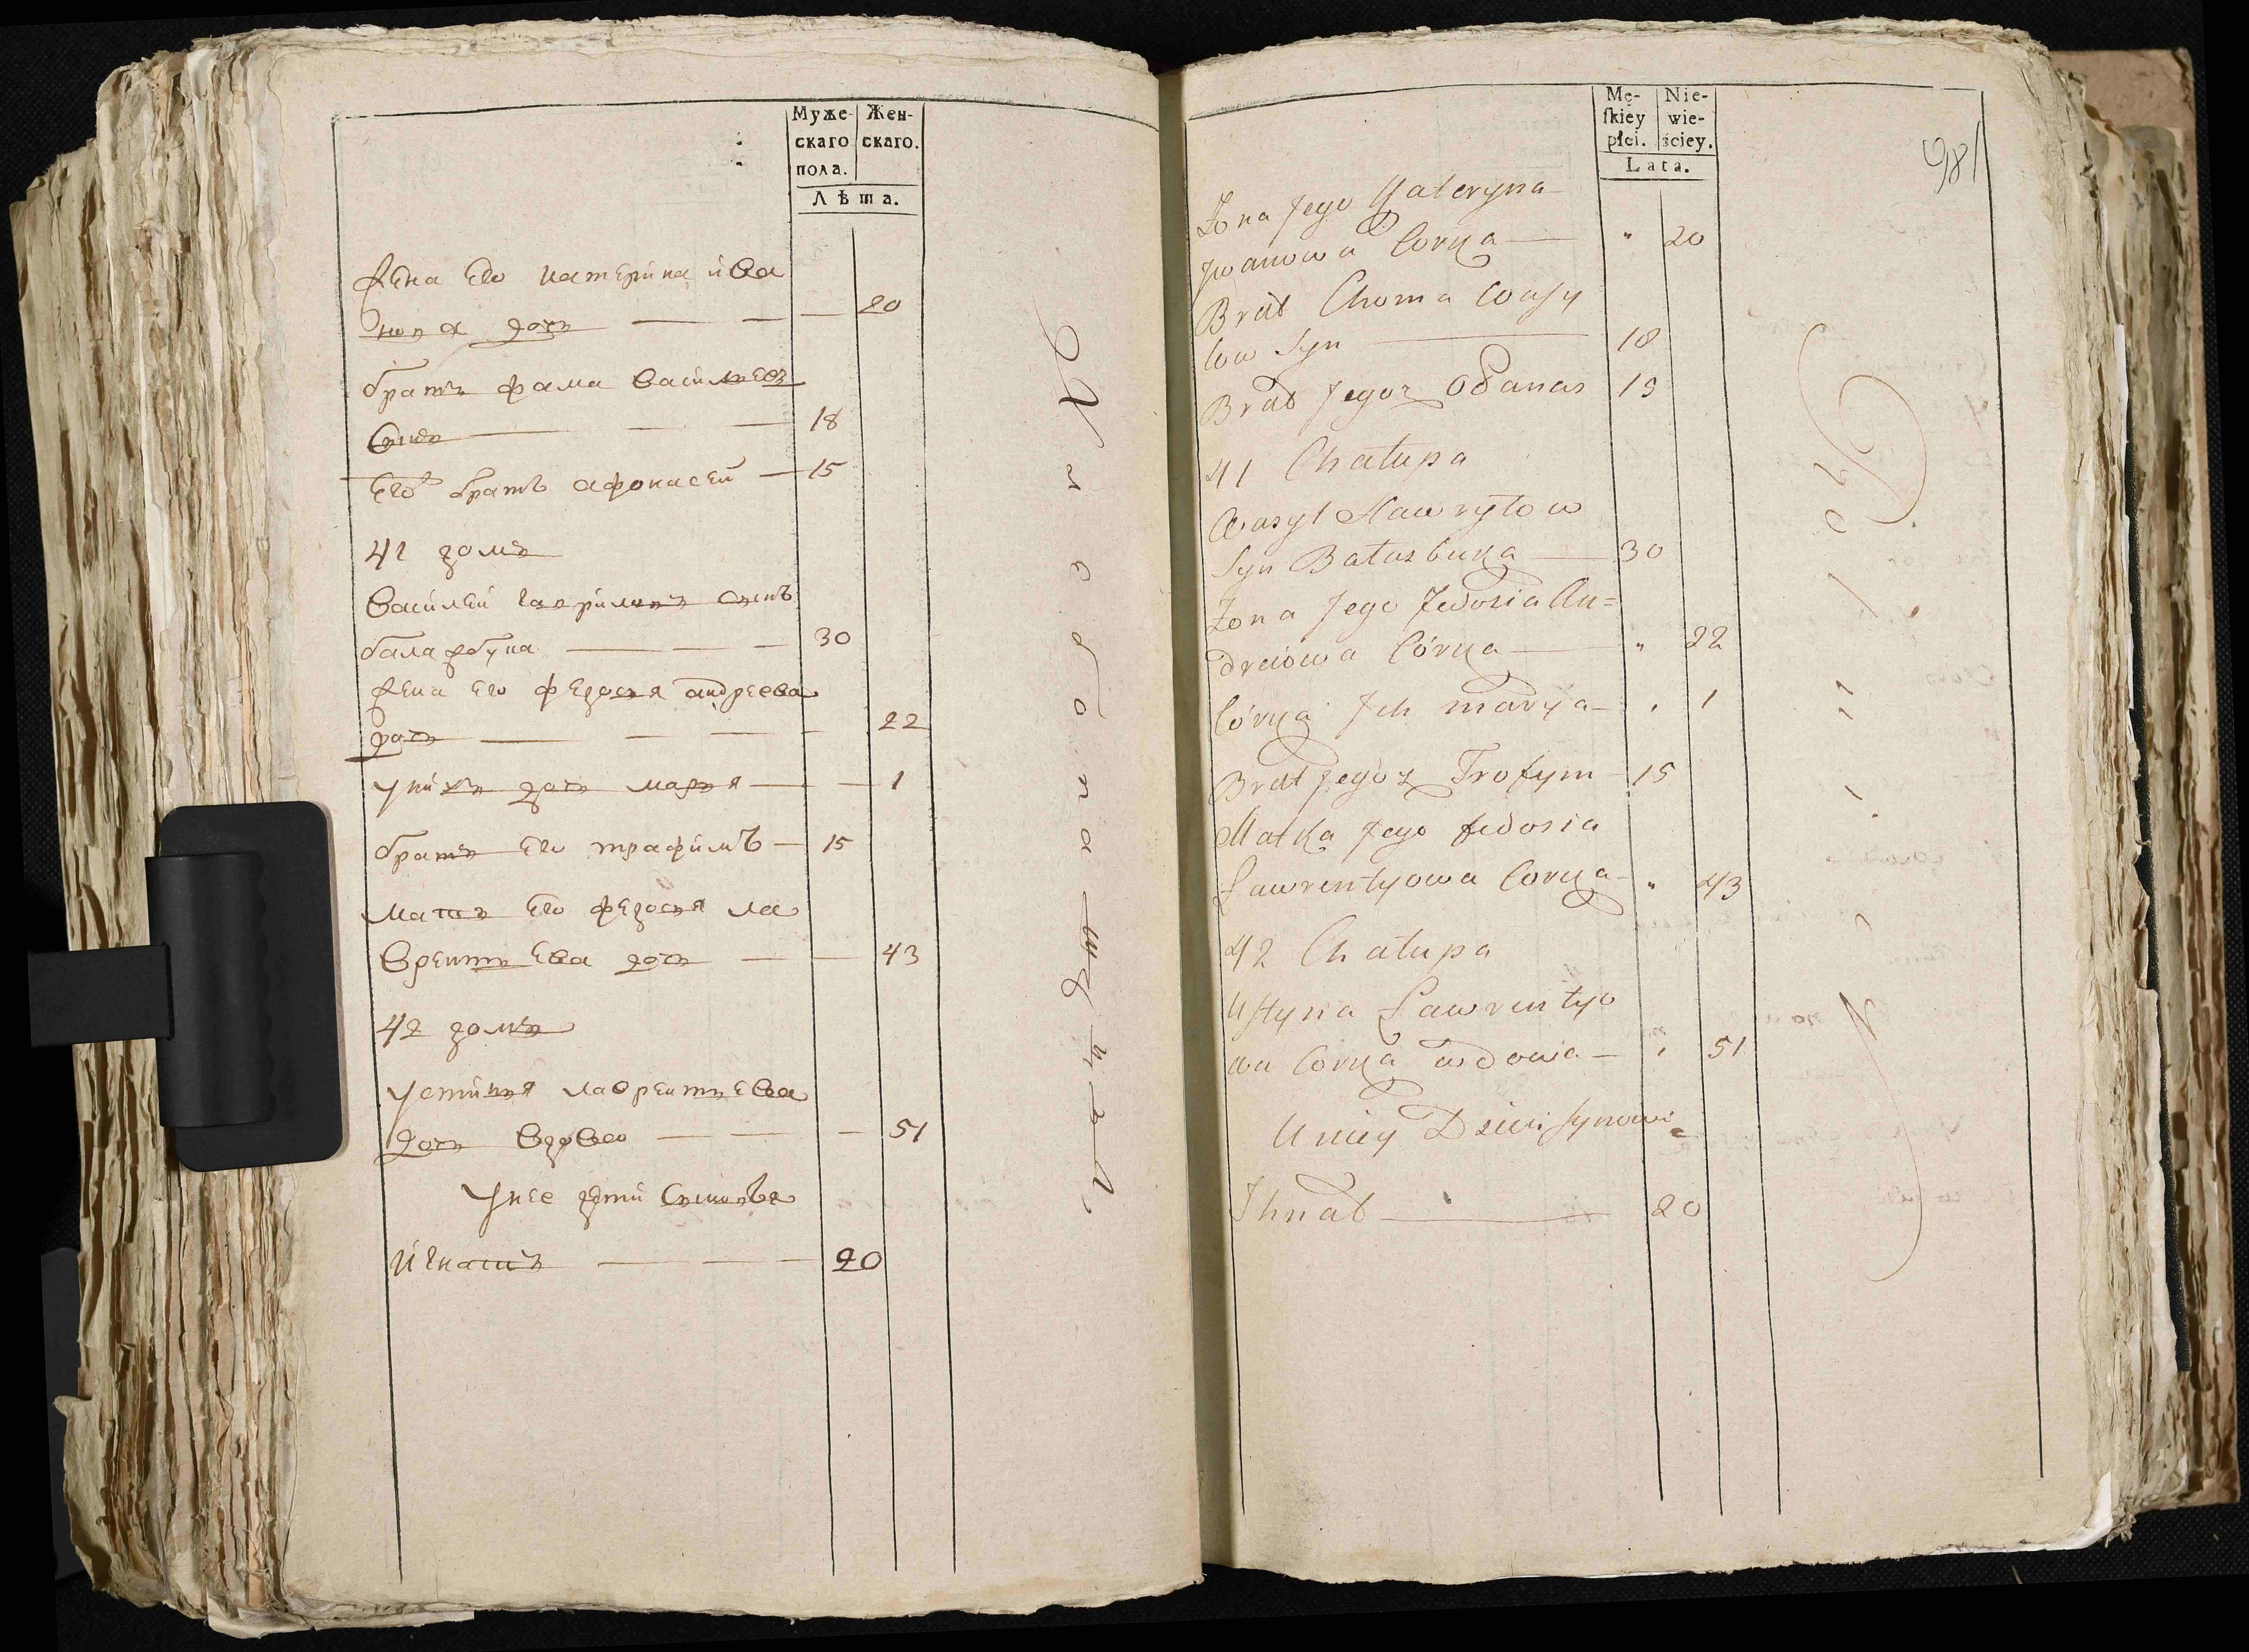 Муже- Жен-
скаго скаго.
пола.
Лѣта.
Жена его катерина ива
нова дочь — — — 20
братъ фама васильевъ
сынъ — — — 18
его братъ афонасей — 15
41 домъ
василей гавриловъ сынъ
балазбука — — — 30
жена его федосья андреева
дочь — — — — 22
у нихъ дочь марья — — 1
братъ его трафимъ — 15
мать его федосья ла
врентьева дочь — — 43
42 домъ
устинья лаврентьева
дочь вдова — — — 51
у нее дети сыновья
игнатъ — — — 20
Mę- Nie-
skiey wie-
płci. ściey.
Lata.
981
Zona Jego Kateryna
Jwanowa Corka — " 20
Brat Choma Wasy
low Syn — 18
Brat Jegoz Odanas 15
41 Chałupa
Wasyl Hawryłow
Syn Bałasbuka — 30
Zona Jego Fedosia An=
dreiowa Córka — " 22
Córka Jch marya — " 1
Brat Jegoz Trofym — 15
Matka Jego fedosia
Lawrentyowa Corka — " 43
42 Chałupa
Ustyna Lawrentyo
wa Corka wdowa — " 51
U niey Dzieci synowie
Ihnat — 20